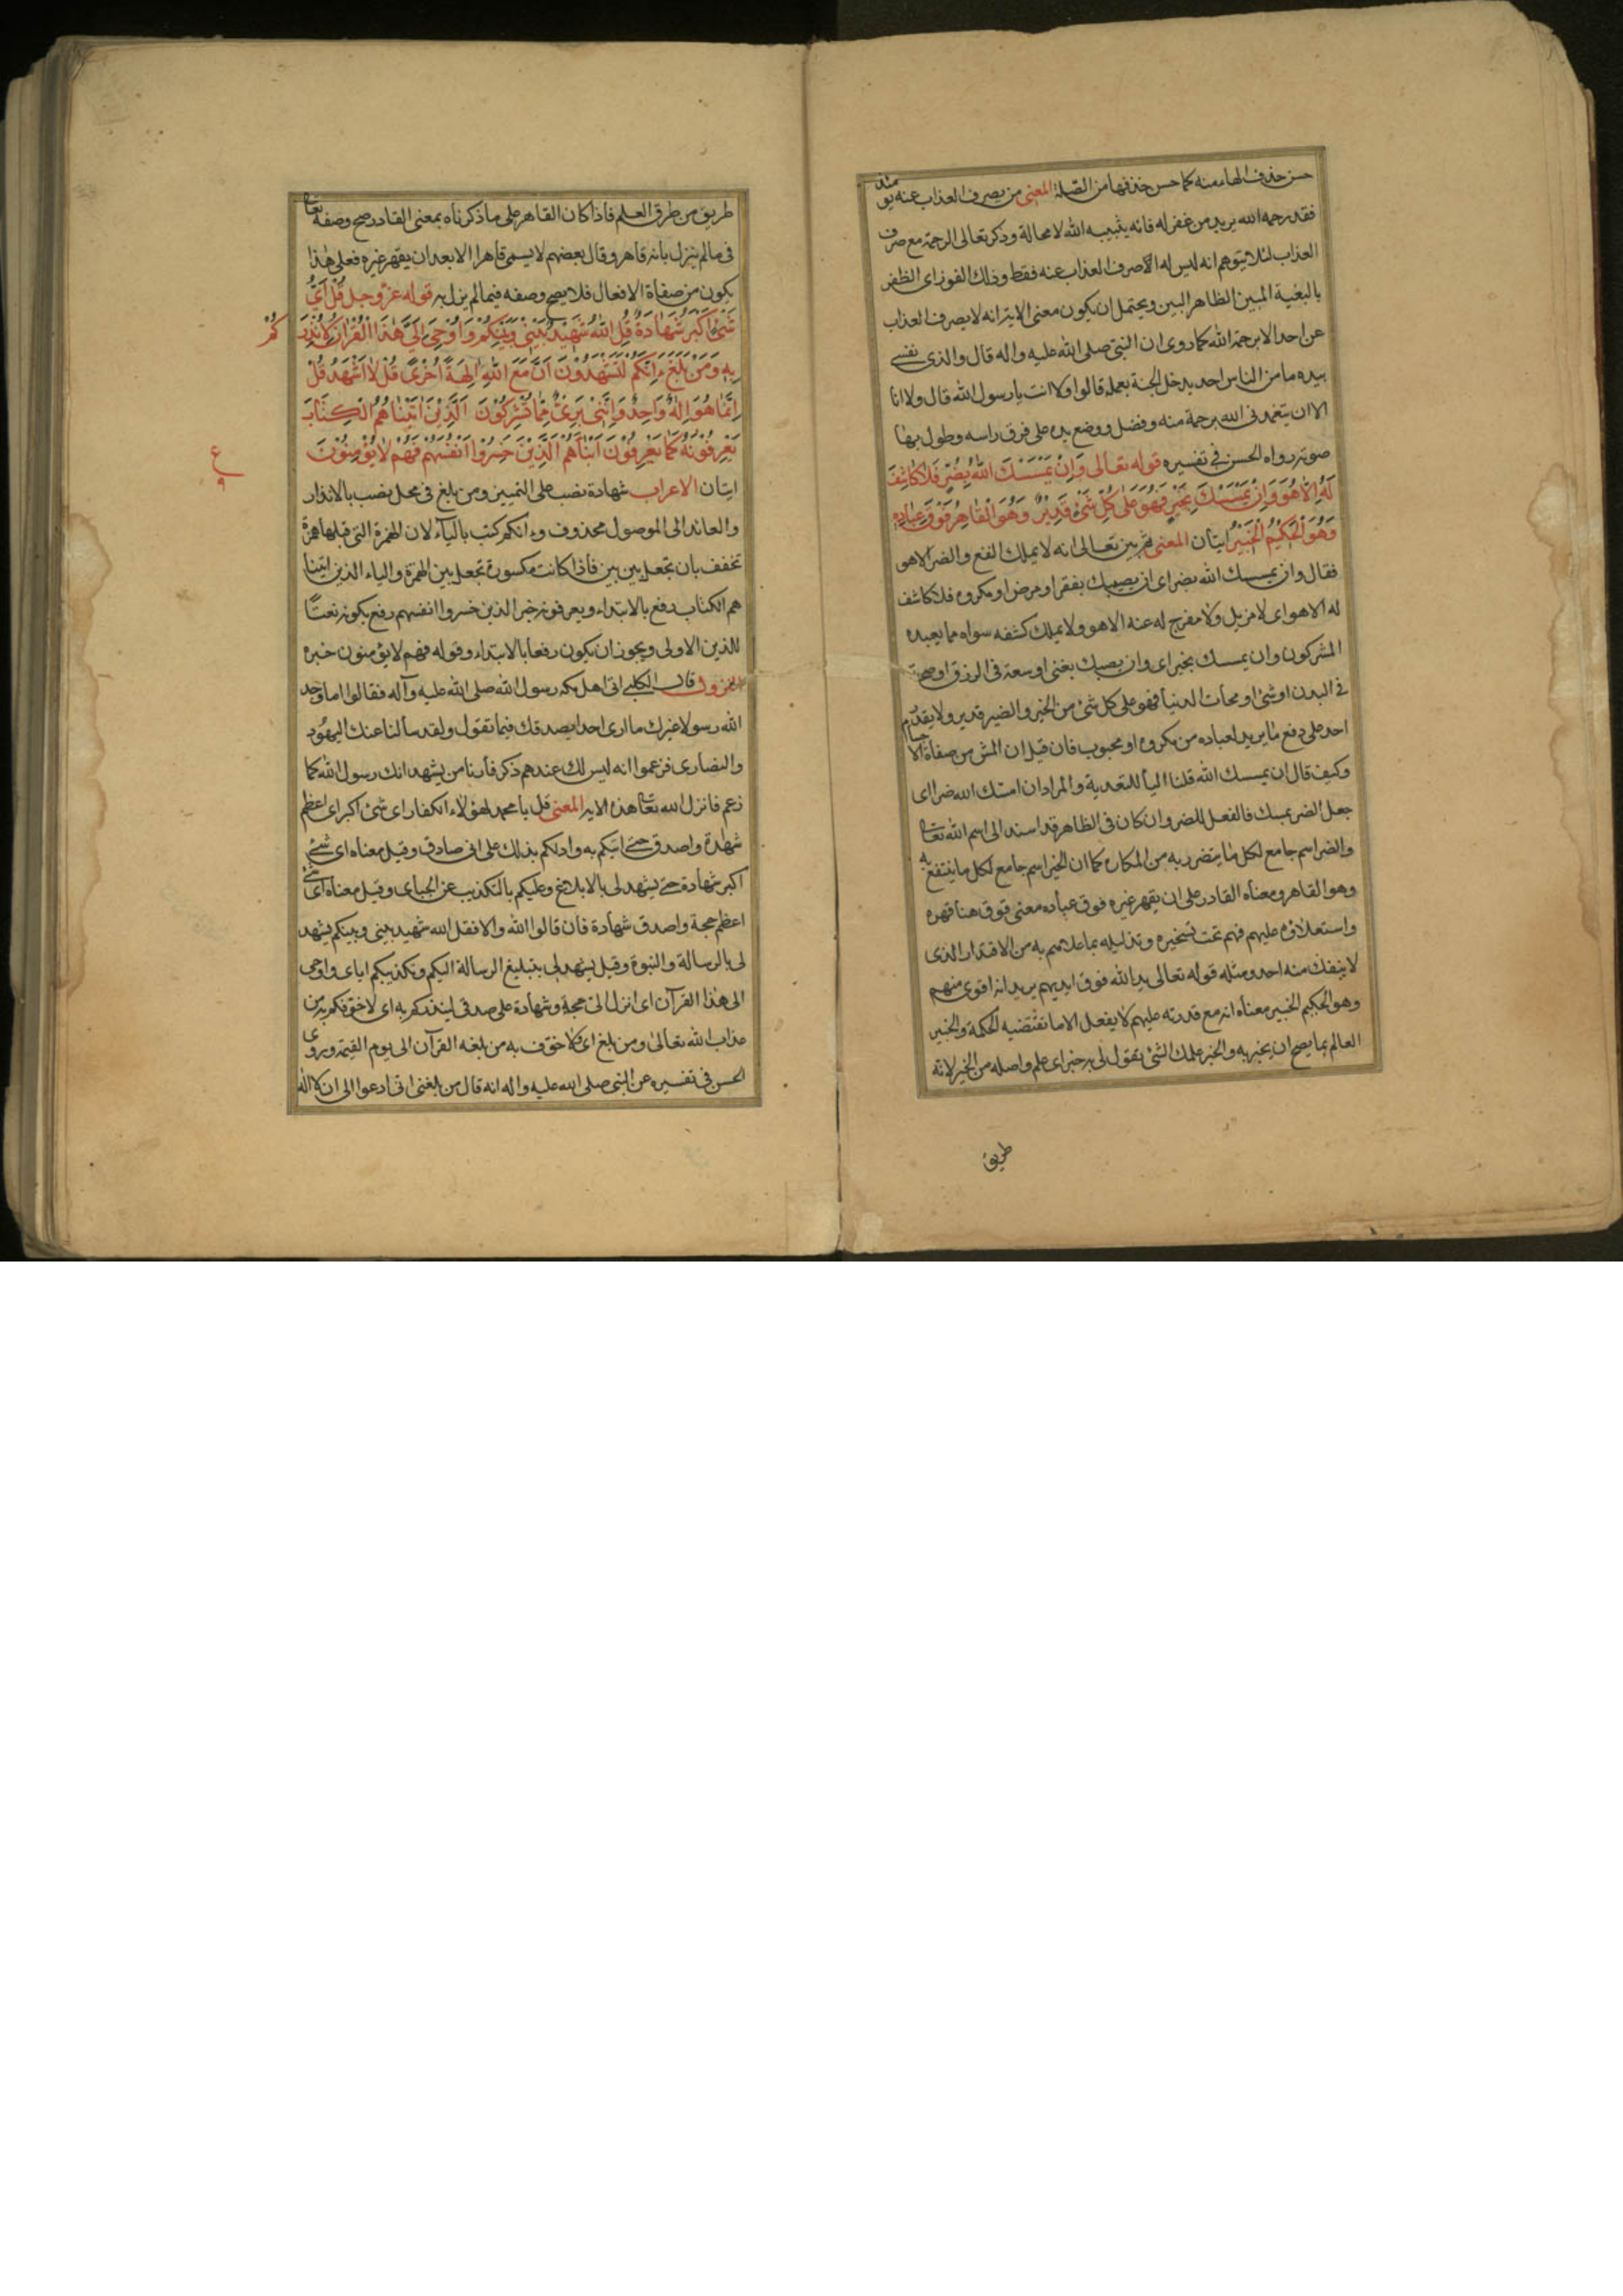 حسن حذف الهاء منه كما حسن حذفها من الصلة المعنى من يصرف العذاب عنه يومئذ
فقد رحمه الله يريد من غفر له فانه يثيبه الله لا محالة وذكر تعالى الرحمة مع صرف
العذاب لئلا يتوهم انه ليس له الا صرف العذاب عنه فقط وذلك الفوز اى الظفر
بالبغية المبين الظاهر البين ويحتمل ان يكون معنى الايه انه لا يصرف العذاب
عن احد الا برحمة الله كما روى ان النبى صلى الله عليه واله قال والذى نفسى
بيده ما من الناس احد يدخل الجنة بعمله قالوا ولا انت يا رسول الله قال ولا انا
الا ان يتغمدنى الله برحمة منه وفضل ووضع يده على فرق راسه وطول بها
صوته رواه الحسن فى تفسيره قوله تعالى وَاِنْ يَمْسَسْكَ اللّٰهُ بِضُرٍّ فَلَا كَاشِفَ
لَهُ اِلَّا هُوَ وَاِنْ يَمْسَسْكَ بِخَيْرٍ فَهُوَ عَلٰى كُلِّ شَىْءٍ قَدِيْرٌ وَهُوَ الْقَاهِرُ فَوْقَ عِبَادِهِ
وَهُوَ الْحَكِيْمُ الْخَبِيْرُ ايتان المعنى ثم بين تعالى انه لا يملك النفع والضر الا هو
فقال وان يمسسك الله بضر اى ان يصيبك بفقر او مرض او مكروه فلا كاشف
له الا هو اى لا مزيل ولا مفرج له عنه الا هو ولا يملك كشفه سواه مما يعبده
المشركون وان يمسسك بخير اى وان يصبك بغنى او سعة فى الرزق او صحة
فى البدن او شئ او محاب الدنيا فهو على كل شئ من الخير والضير قدير ولا يقدر
احد على دفع ما يريد لعباده من مكروه او محبوب فان قيل ان المس من صفاة الاجسام
وكيف قال ان يمسسك الله قلنا الباء للتعدية والمراد ان امسك الله ضرا اى
جعل الضر يمسك فالفعل للضر وان كان فى الظاهر قد اسند الى اسم الله تعالى
والضر اسم جامع لكل ما يتضرر به من المكاره كما ان الخير اسم جامع لكل ما ينتفع به
وهو القاهر ومعناه القادر على ان يقهر غيره فوق عباده معنى فوق هنا قهره
واستعلاؤه عليهم فهم تحت تسخيره وتذليله بما علاهم به من الاقتدار الذى
لا ينفك منه احد ومثله قوله تعالى يد الله فوق ايديهم يريد انه اقوى منهم
وهو الحكيم الخبير معناه انه مع قدرته عليهم لا يفعل الا ما تقتضيه الحكمة والخبير
العالم بما يصح ان يخبر به والخبر علمك الشئ تقول لى به خبر اى علم واصله من الخبر لانه
طريق
طريق من طرق العلم فاذا كان القاهر على ما ذكرناه بمعنى القادر صح وصفه تعالى
فى ما لم ينزل بانه قاهر وقال بعضهم لا يسمى قاهرا الا بعد ان يقهر غيره فعلى هذا
يكون من صفاة الافعال فلا يصح وصفه فيما لم يزل به قوله عز وجل قُلْ اَىُّ
شَىْءٍ اَكْبَرُ شَهَادَةً قُلِ اللّٰهُ شَهِيْدٌ بَيْنِىْ وَبَيْنَكُمْ وَاُوْحِىَ اِلَىَّ هٰذَا الْقُرْاٰنُ لِاُنْذِرَ
كُمْ
بِهٖ وَمَنْ بَلَغَ ءَاِنَّكُمْ لَتَشْهَدُوْنَ اَنَّ مَعَ اللّٰهِ اٰلِهَةً اُخْرٰى قُلْ لَا اَشْهَدُ قُلْ
اِنَّمَا هُوَ اِلٰهٌ وَاحِدٌ وَاِنَّنِىْ بَرِىْءٌ مِّمَّا تُشْرِكُوْنَ اَلَّذِيْنَ اٰتَيْنَاهُمُ الْكِتَابَ
يَعْرِفُوْنَهٗ كَمَا يَعْرِفُوْنَ اَبْنَاءَهُمُ الَّذِيْنَ خَسِرُوْا اَنْفُسَهُمْ فَهُمْ لَا يُؤْمِنُوْنَ
ع
٩
ايتان الاعراب شهادة نصب على التمييز ومن بلغ فى محل نصب بالانذار
والعائد الى الموصول محذوف وءانكم كتب بالياء لان الهمزة التى قبلها همزة
تخفف بان تجعل بين بين فاذا كانت مكسورة تجعل بين الهمزة والياء الذين اتينا
هم الكتاب رفع بالابتداء ويعرفونه خبر الذين خسروا انفسهم رفع بكونه نعتا
للذين الاولى ويجوز ان يكون رفعا بالابتداء وقوله فهم لا يؤمنون خبره
النزول قال الكلبى اتى اهل مكه رسول الله صلى الله عليه وآله فقالوا اما وجد
الله رسولا غيرك ما ارى احدا يصدقك فيما تقول ولقد سألنا عنك اليهود
والنصارى فزعموا انه ليس لك عندهم ذكر فأرنا من يشهد انك رسول الله كما
زعم فانزل الله تعالى هذه الايه المعنى قل يا محمد لهؤلاء الكفار اى شئ اكبر اى اعظم
شهادة واصدق حتى اتيكم به وادلكم بذلك على انى صادق وقيل معناه اى شئ
اكبر شهادة حتى يشهد لى بالابلاغ وعليكم بالتكذيب عن الجباى وقيل معناه اى شئ
اعظم حجة واصدق شهادة فان قالوا الله والا فقل الله شهيد بينى وبينكم يشهد
لى بالرسالة والنبوة وقيل يشهد لى بتبليغ الرسالة اليكم وتكذيبكم اياى واوحى
الى هذا القرآن اى انزل الى حجة وشهادة على صدقى لينذركم به اى لاخوفكم به من
عذاب الله تعالى ومن بلغ اى ولاخوف به من بلغه القرآن الى يوم القيمة وروى
الحسن فى تفسيره عن النبى صلى الله عليه واله انه قال من بلغنى انى ادعوا الى ان لا اله